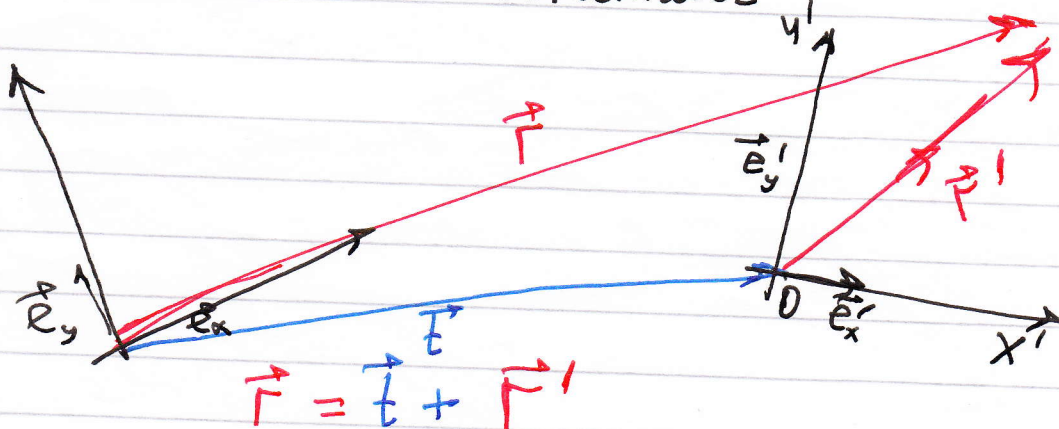 y'
r⃗
e⃗y'
r⃗'
e⃗y
e⃗x
t⃗
O
e⃗x'
x'
r⃗ = t⃗ + r⃗'